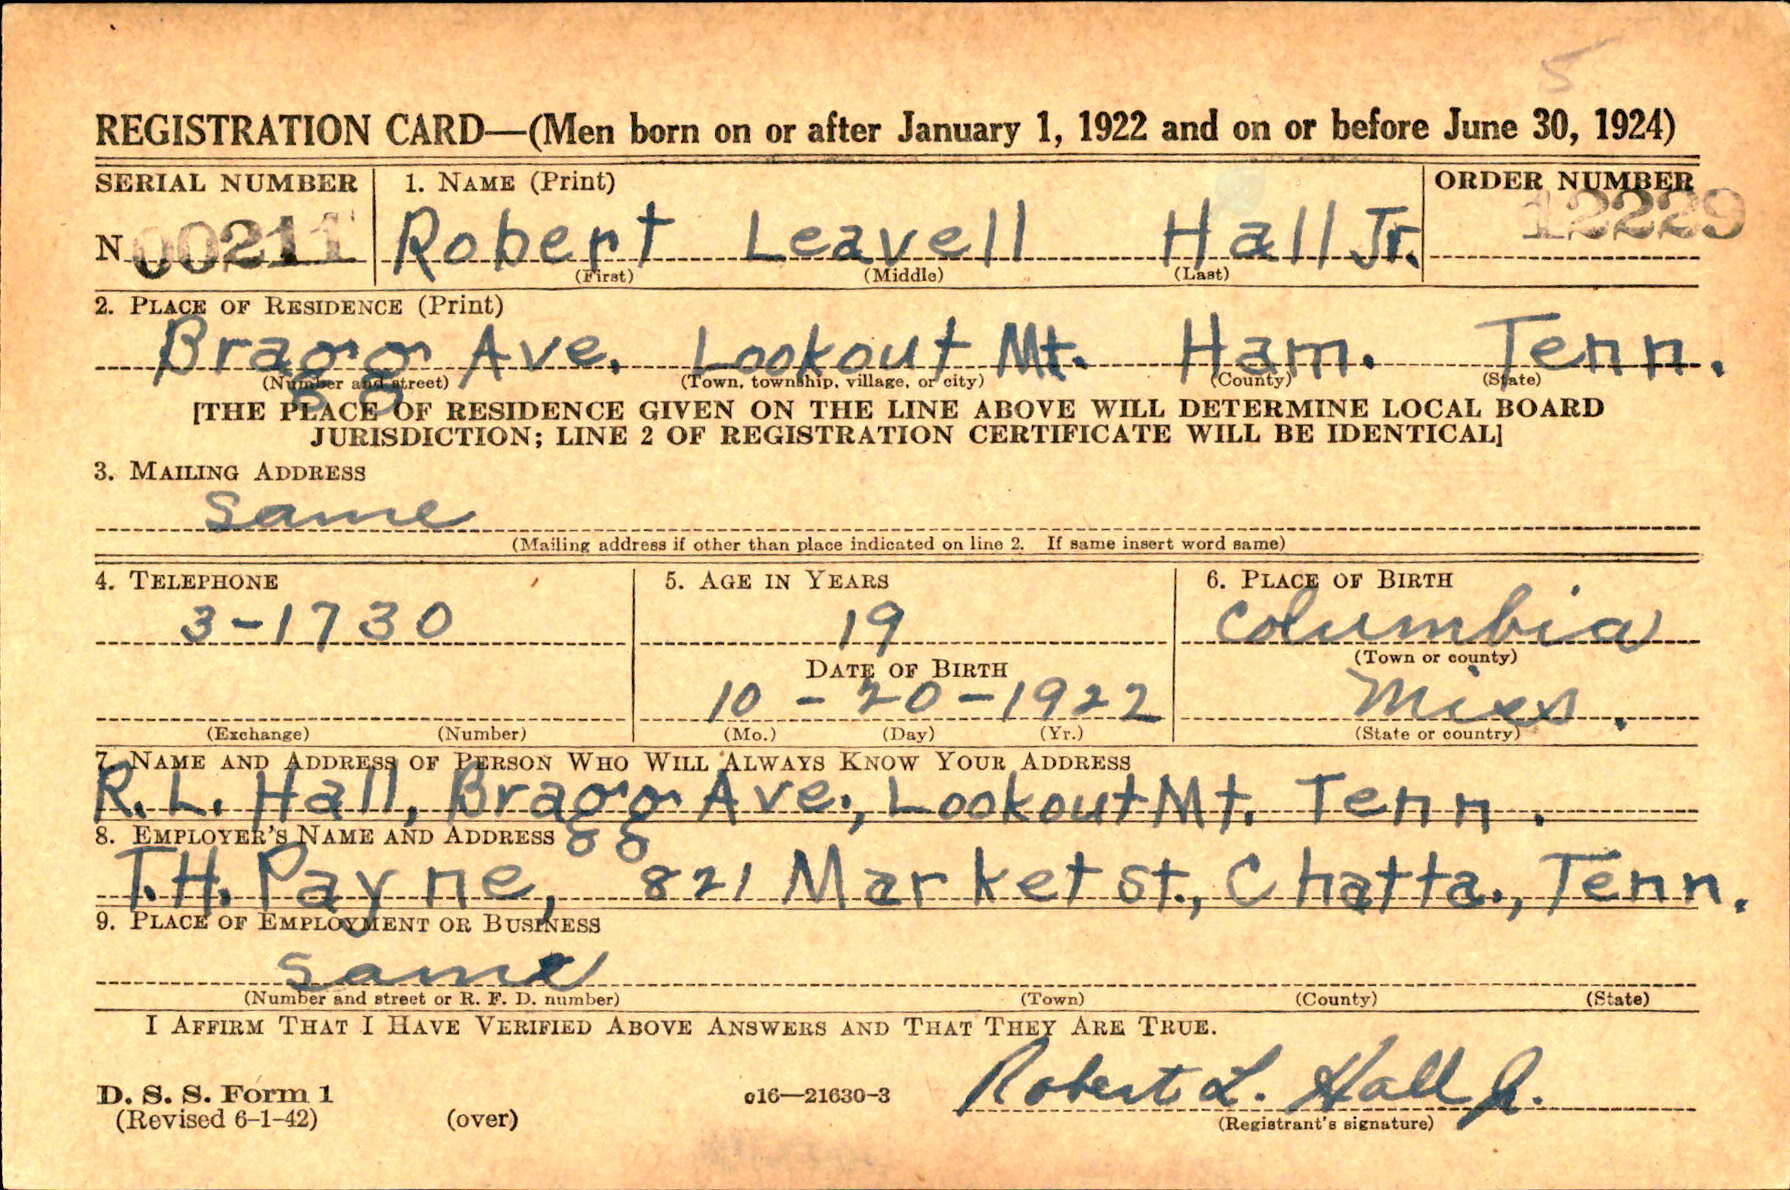 5
REGISTRATION CARD—(Men born on or after January 1, 1922 and on or before June 30, 1924)
SERIAL NUMBER 1. NAME (Print) ORDER NUMBER
N 00211 Robert Leavell Hall Jr. 12229
(First) (Middle) (Last)
2. PLACE OF RESIDENCE (Print)
Bragg Ave. Lookout Mt. Ham. Tenn.
(Number and street) (Town, township, village, or city) (County) (State)
[THE PLACE OF RESIDENCE GIVEN ON THE LINE ABOVE WILL DETERMINE LOCAL BOARD
JURISDICTION; LINE 2 OF REGISTRATION CERTIFICATE WILL BE IDENTICAL]
3. MAILING ADDRESS
Same
(Mailing address if other than place indicated on line 2. If same insert word same)
4. TELEPHONE 5. AGE IN YEARS 6. PLACE OF BIRTH
3-1730 19 Columbia
(Town or county)
DATE OF BIRTH
10-20-1922 Miss.
(Exchange) (Number) (Mo.) (Day) (Yr.) (State or country)
7. NAME AND ADDRESS OF PERSON WHO WILL ALWAYS KNOW YOUR ADDRESS
R. L. Hall, Bragg Ave., Lookout Mt. Tenn.
8. EMPLOYER'S NAME AND ADDRESS
T.H. Payne, 821 Market St., Chatta., Tenn.
9. PLACE OF EMPLOYMENT OR BUSINESS
Same
(Number and street or R. F. D. number) (Town) (County) (State)
I AFFIRM THAT I HAVE VERIFIED ABOVE ANSWERS AND THAT THEY ARE TRUE.
Robert L. Hall Jr.
D. S. S. Form 1 c16—21630-3
(Revised 6-1-42) (over) (Registrant's signature)